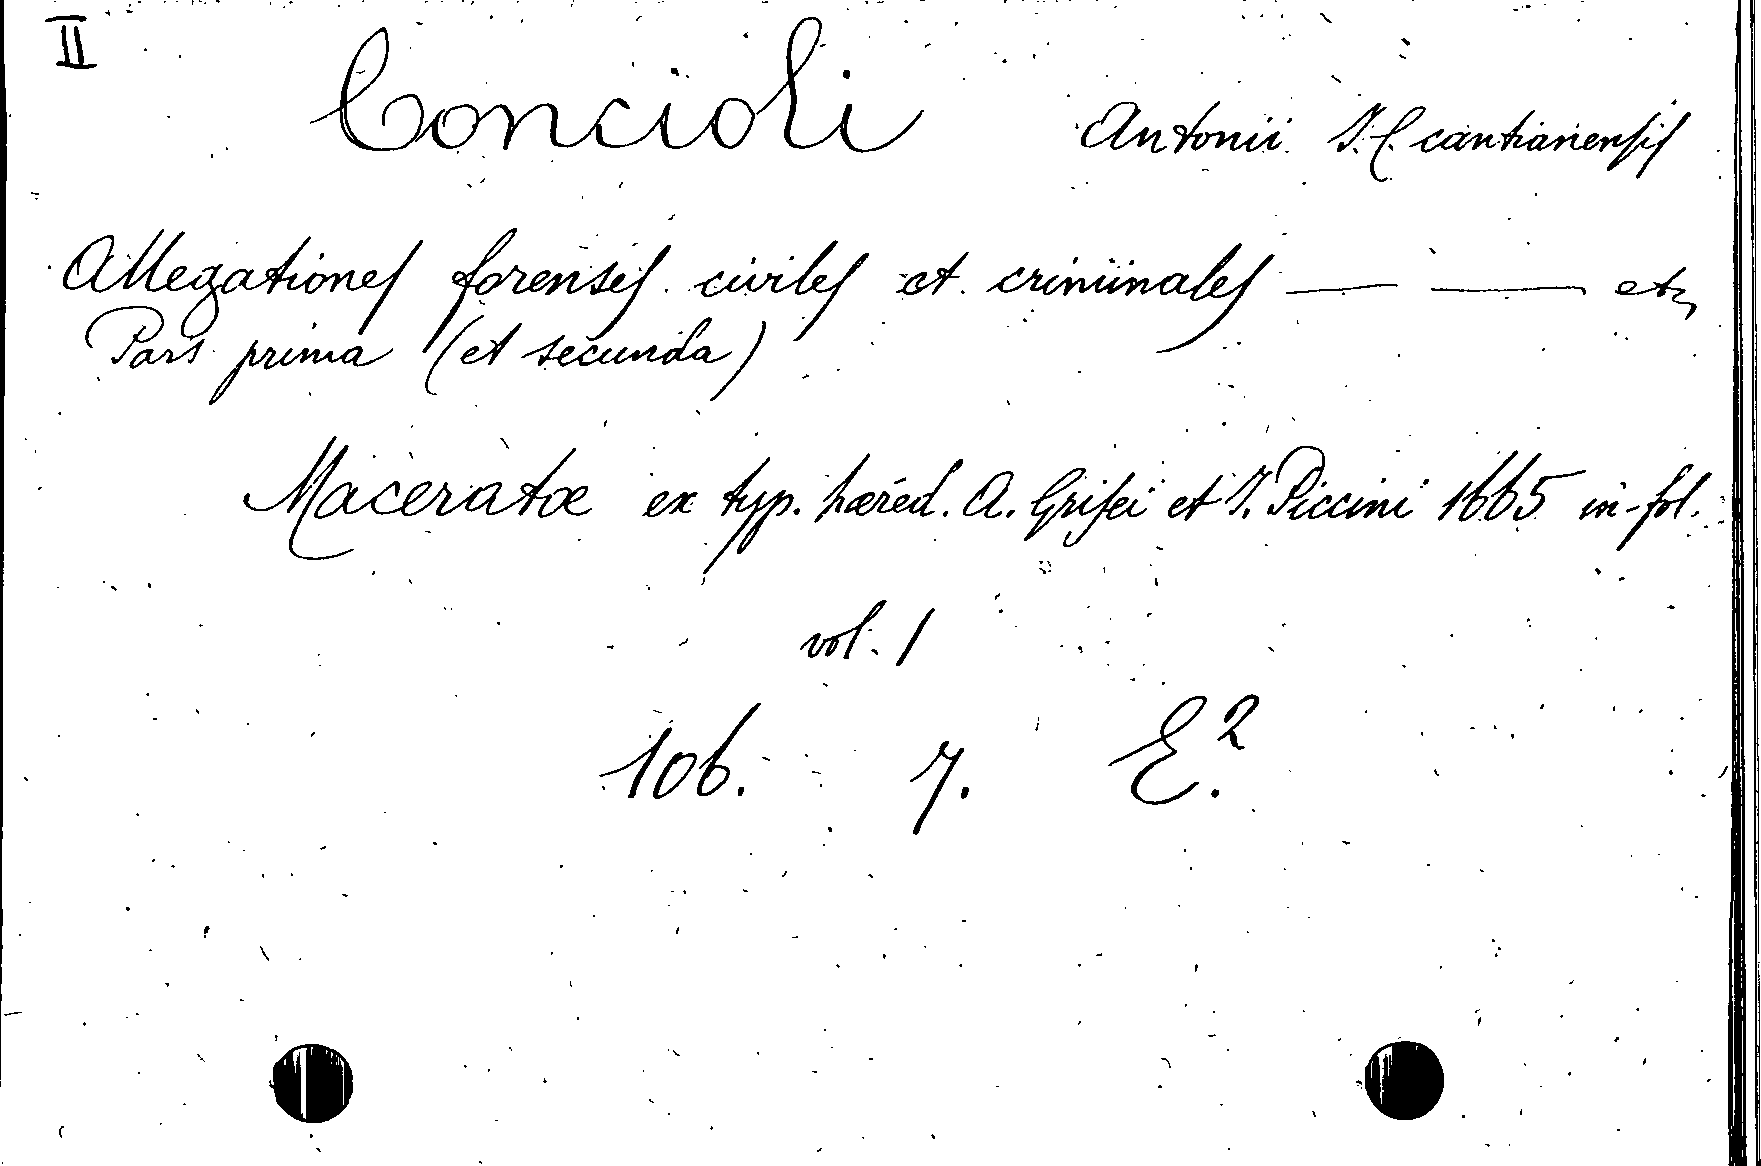 II
Concioli Antonii J. C. cantianensis
Allegationes forenses civiles et criminales — — etc
Pars prima (et secunda)
Maceratæ ex typ. hæred. A. Grisei et J. Piccini 1665 in-fol.
vol. 1
106. 7. E.²